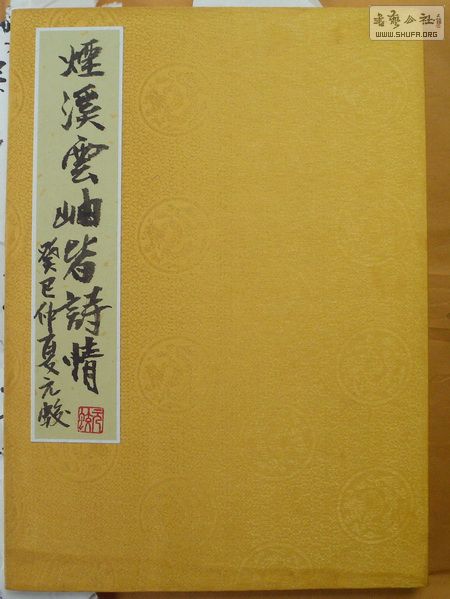 煙溪雲岫皆詩情
癸巳仲夏元
書藝公社
WWW.SHUFA.ORG